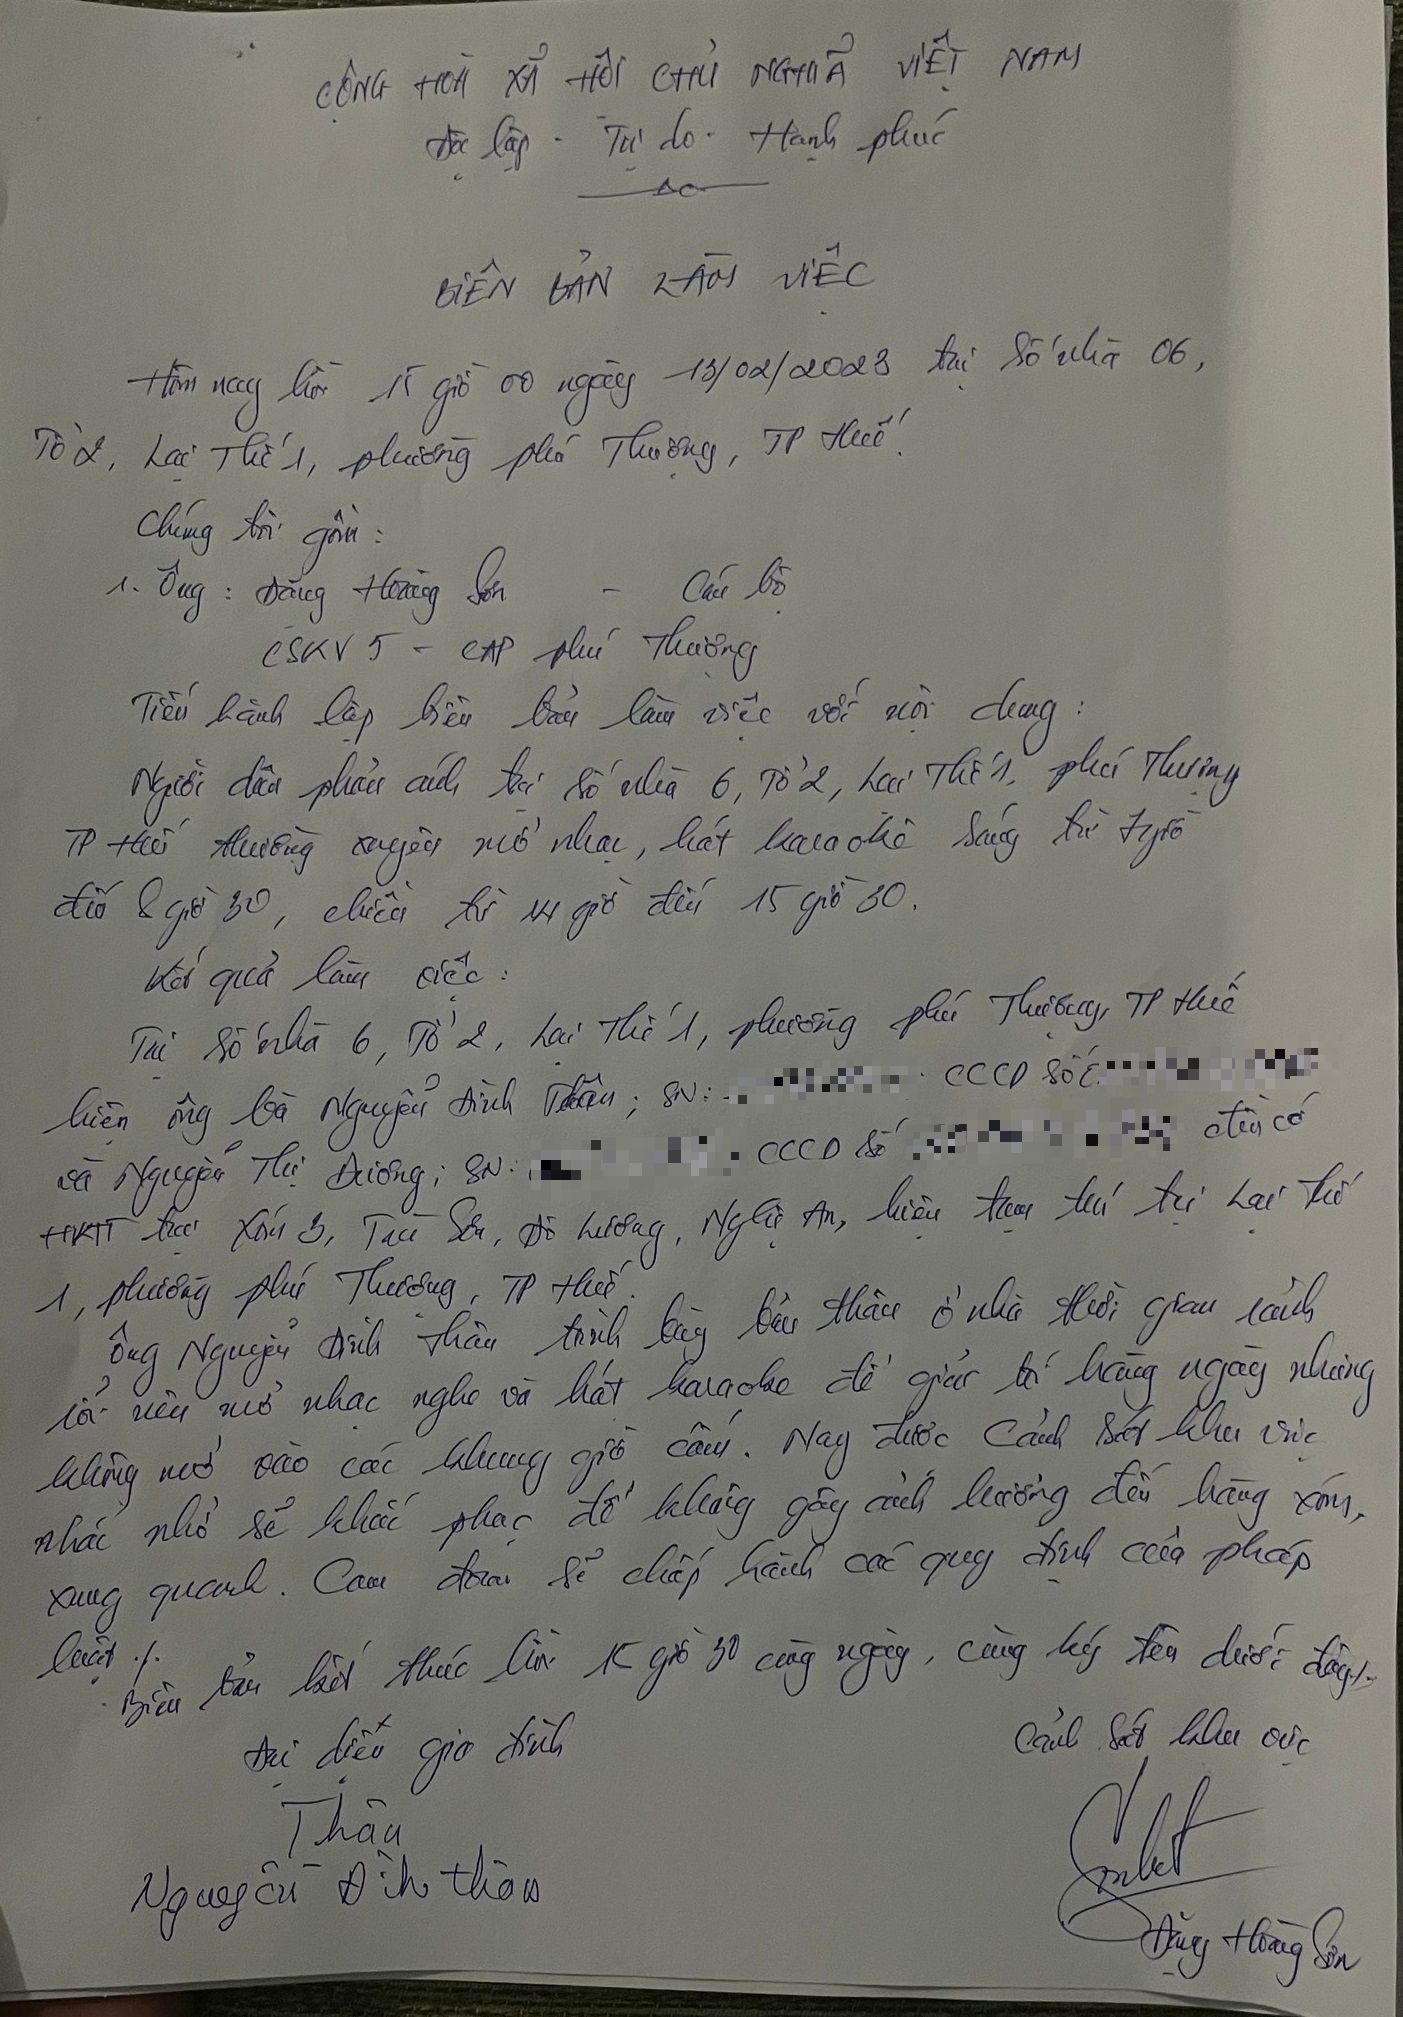 CỘNG HOÀ XÃ HỘI CHỦ NGHĨA VIỆT NAM
Độc lập - Tự do - Hạnh phúc
BIÊN BẢN LÀM VIỆC
Hôm nay hồi 15 giờ 00 ngày 13/02/2023 tại số nhà 06,
Tổ 2, Lại Thế 1, phường phú Thượng, TP Huế.
Chúng tôi gồm:
1. Ông: Đặng Hoàng Sơn - Cán bộ
CSKV 5 - CAP phú Thượng
Tiến hành lập biên bản làm việc với nội dung:
Người dân phản ánh tại số nhà 6, Tổ 2, Lại Thế 1, phú Thượng
TP Huế thường xuyên mở nhạc, hát karaoke sáng từ 7 giờ
đến 8 giờ 30, chiều từ 14 giờ đến 15 giờ 30.
Kết quả làm việc:
Tại số nhà 6, Tổ 2, Lại Thế 1, phường phú Thượng, TP Huế
hiện ông bà Nguyễn Đình Thân; SN: CCCD số
và Nguyễn Thị Dương; SN: CCCD số đều có
HKTT tại Xóm 3, Sơn, Đô Lương, Nghệ An, hiện tạm trú tại Lại Thế
1, phường phú Thượng, TP Huế.
Ông Nguyễn Đình Thân trình bày bản thân ở nhà thời gian rảnh
rỗi nên mở nhạc nghe và hát karaoke để giải trí hàng ngày nhưng
không mở vào các khung giờ cấm. Nay được Cảnh sát khu vực
nhắc nhở sẽ khắc phục để không gây ảnh hưởng đến hàng xóm,
xung quanh. Cam đoan sẽ chấp hành các quy định của pháp
luật ./.
Biên bản kết thúc lúc 15 giờ 30 cùng ngày, cùng ký tên dưới đây./.
Đại diện gia đình
Cảnh sát khu vực
Thân
Nguyễn Đình Thân
Đặng Hoàng Sơn